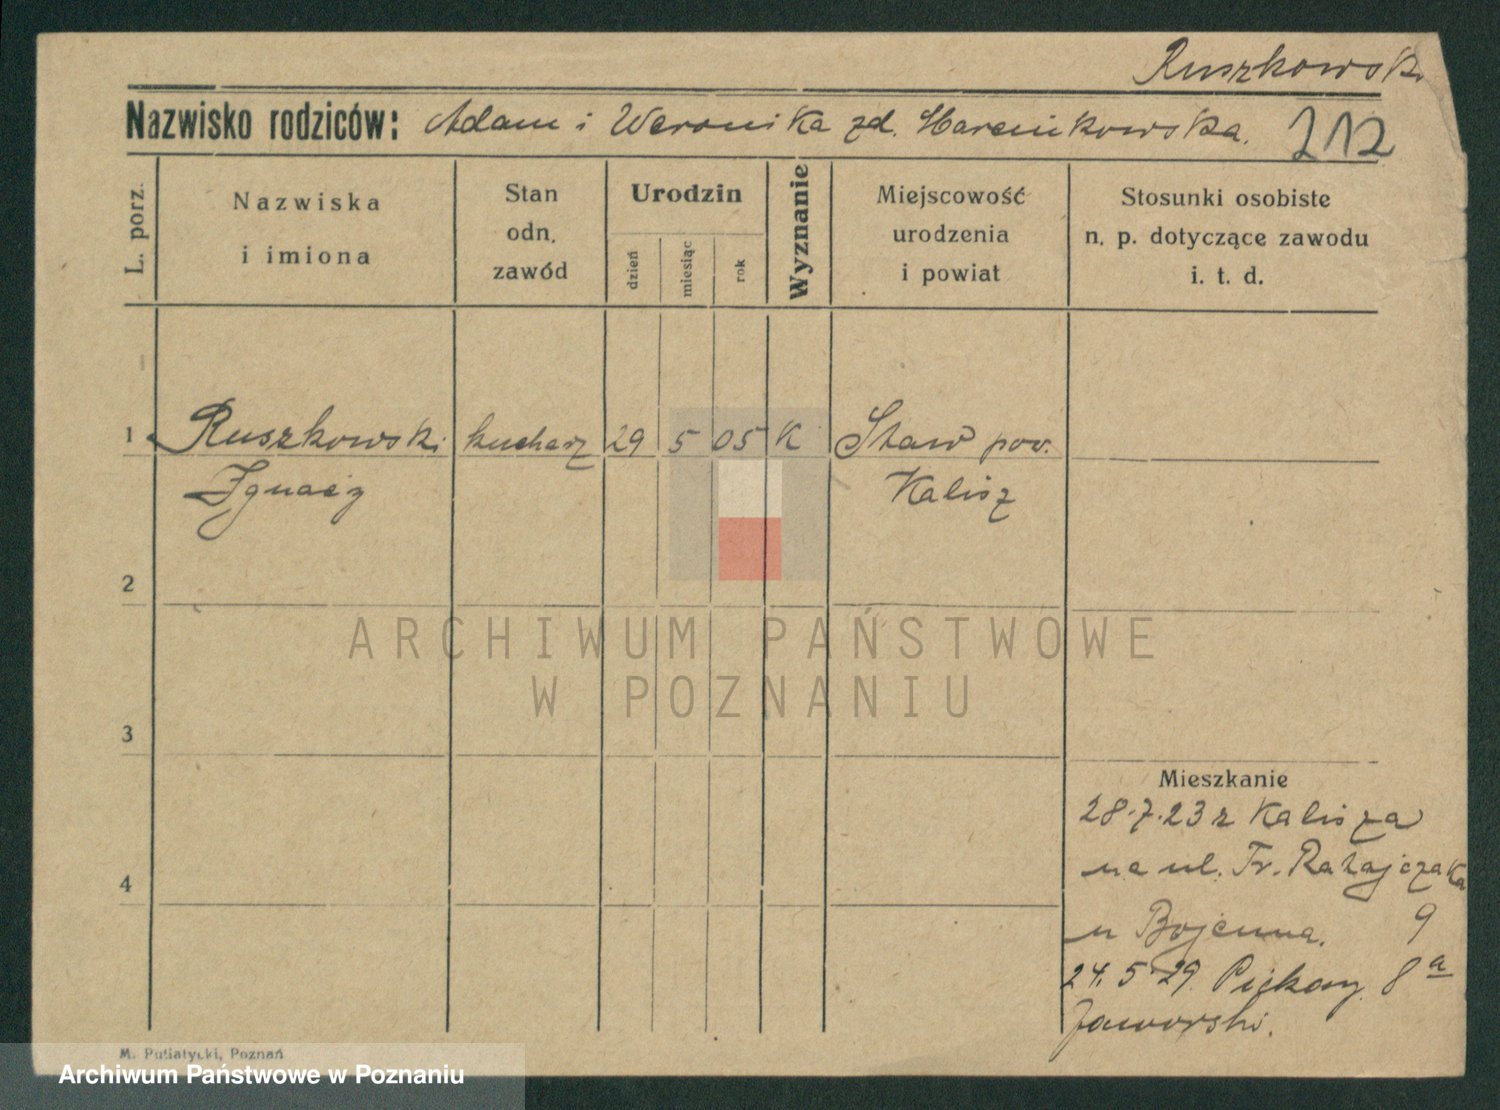 Ruszkowski
Nazwisko rodziców: Adam i Weronika zd.
212
L. porz.
Nazwiska
i imiona
Stan
odn.
zawód
Urodzin
dzień
miesiąc
rok
Wyznanie
Miejscowość
urodzenia
i powiat
Stosunki osobiste
n. p. dotyczące zawodu
i. t. d.
1 Ruszkowski kucharz 29 5 05 K Staw pow.
Ignacy Kalisz
2
ARCHIWUM PAŃSTWOWE
W POZNANIU
3
4
Mieszkanie
28.7.23 z Kalisza
na ul. Fr. Ratajczaka
u 9
24.5.29. Piekary 8a
Jaworski.
M. Putiatycki, Poznań
Archiwum Państwowe w Poznaniu